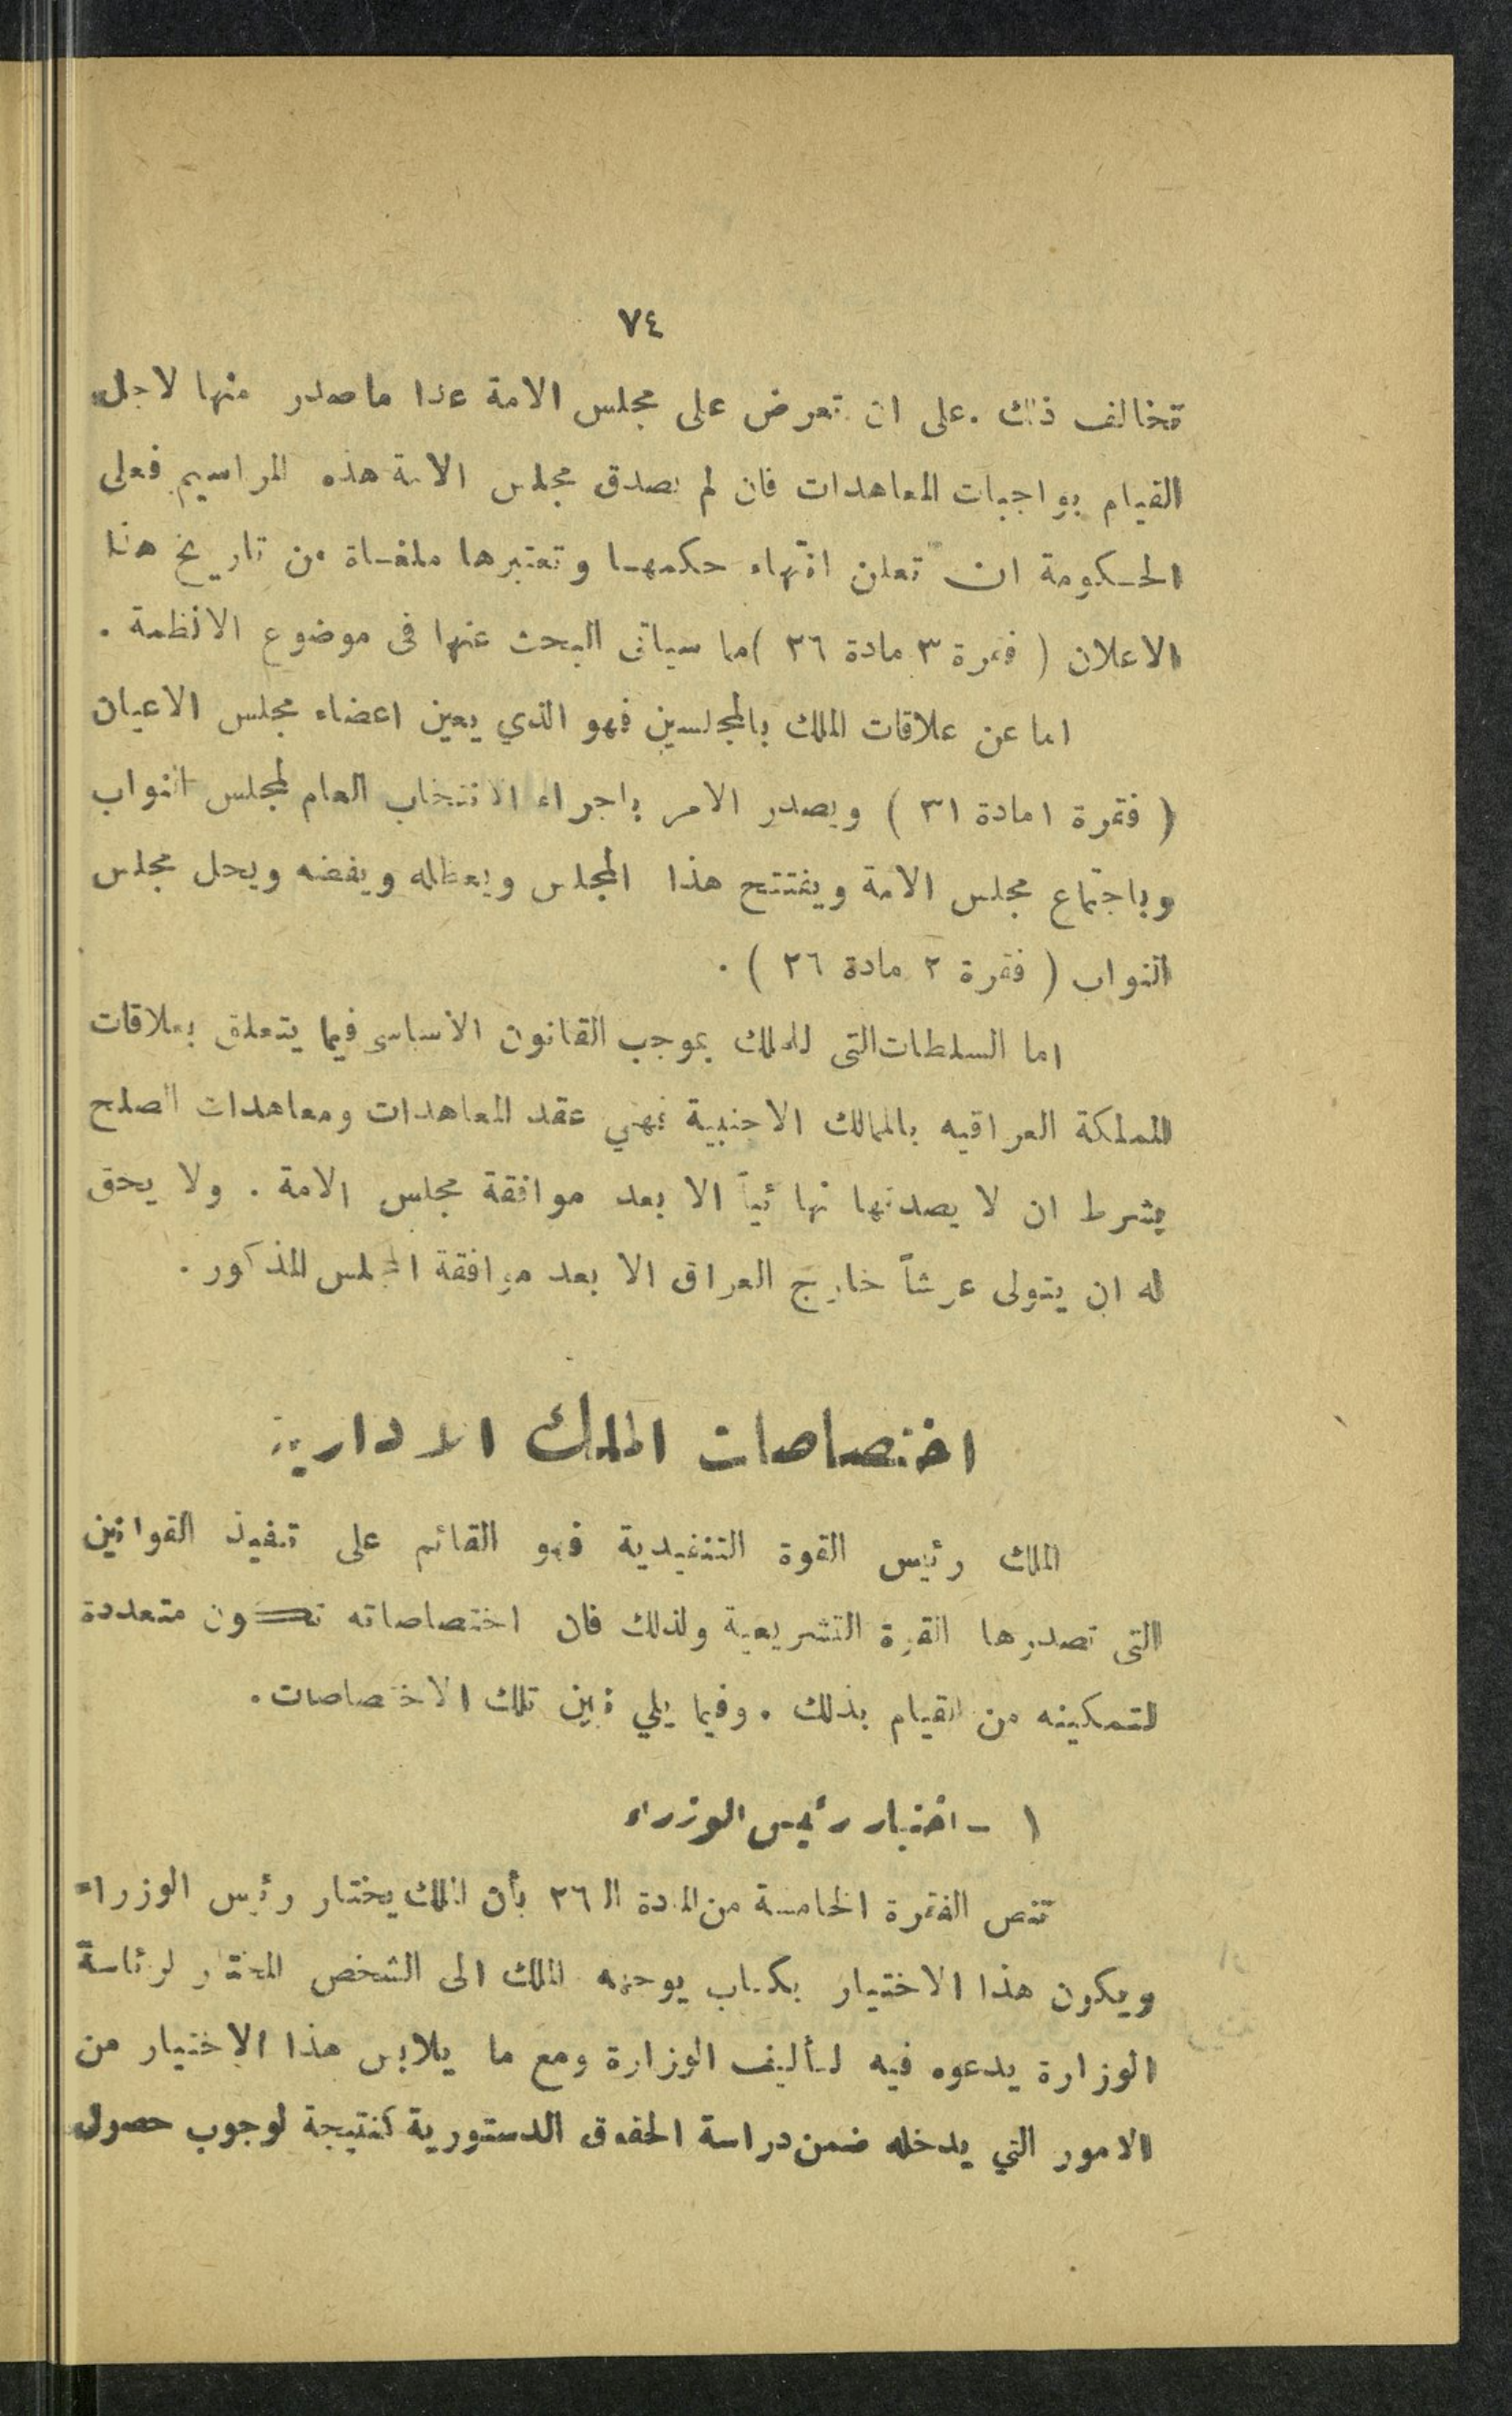 ٧٤
تخالف ذلك . على ان تعرض على مجلس الامة عدا ما صدر منها لاجل
القيام بواجبات المعاهدات فان لم يصدق مجلس الامة هذه المراسيم فعلى
الحكومة ان تعلن انتهاء حكمها وتعتبرها ملغاة من تاريخ هذا
الاعلان ( فقرة ٣ مادة ٢٦ ) مما سيأتى البحث عنها فى موضوع الانظمة .
اما عن علاقات الملك بالمجلسين فهو الذي يعين اعضاء مجلس الاعيان
( فقرة ١ مادة ٣١ ) ويصدر الامر باجراء الانتخاب العام لمجلس النواب
وباجتماع مجلس الامة ويفتتح هذا المجلس ويعطله ويفضه ويحل مجلس
النواب ( فقرة ٢ مادة ٢٦ ) .
اما السلطات التى للملك بموجب القانون الاساسى فيما يتعلق بعلاقات
المملكة العراقيه بالممالك الاجنبية فهي عقد المعاهدات ومعاهدات الصلح
بشرط ان لا يصدقها نهائياً الا بعد موافقة مجلس الامة . ولا يحق
له ان يتولى عرشاً خارج العراق الا بعد موافقة المجلس المذكور .
اختصاصات الملك الادارية
الملك رئيس القوة التنفيدية فهو القائم على تنفيذ القوانين
التى تصدرها القوة التشريعية ولذلك فان اختصاصاته تكون متعددة
لتمكينه من القيام بذلك . وفيما يلي نبين تلك الاختصاصات .
١ - اختيار رئيس الوزراء
تنص الفقرة الخامسة من المادة الـ ٢٦ بأن الملك يختار رئيس الوزراء
ويكون هذا الاختيار بكتاب يوجهه الملك الى الشخص المختار لرئاسة
الوزارة يدعوه فيه لتأليف الوزارة ومع ما يلابس هذا الاختيار من
الامور التي يدخله ضمن دراسة الحقوق الدستورية كنتيجة لوجوب حصول